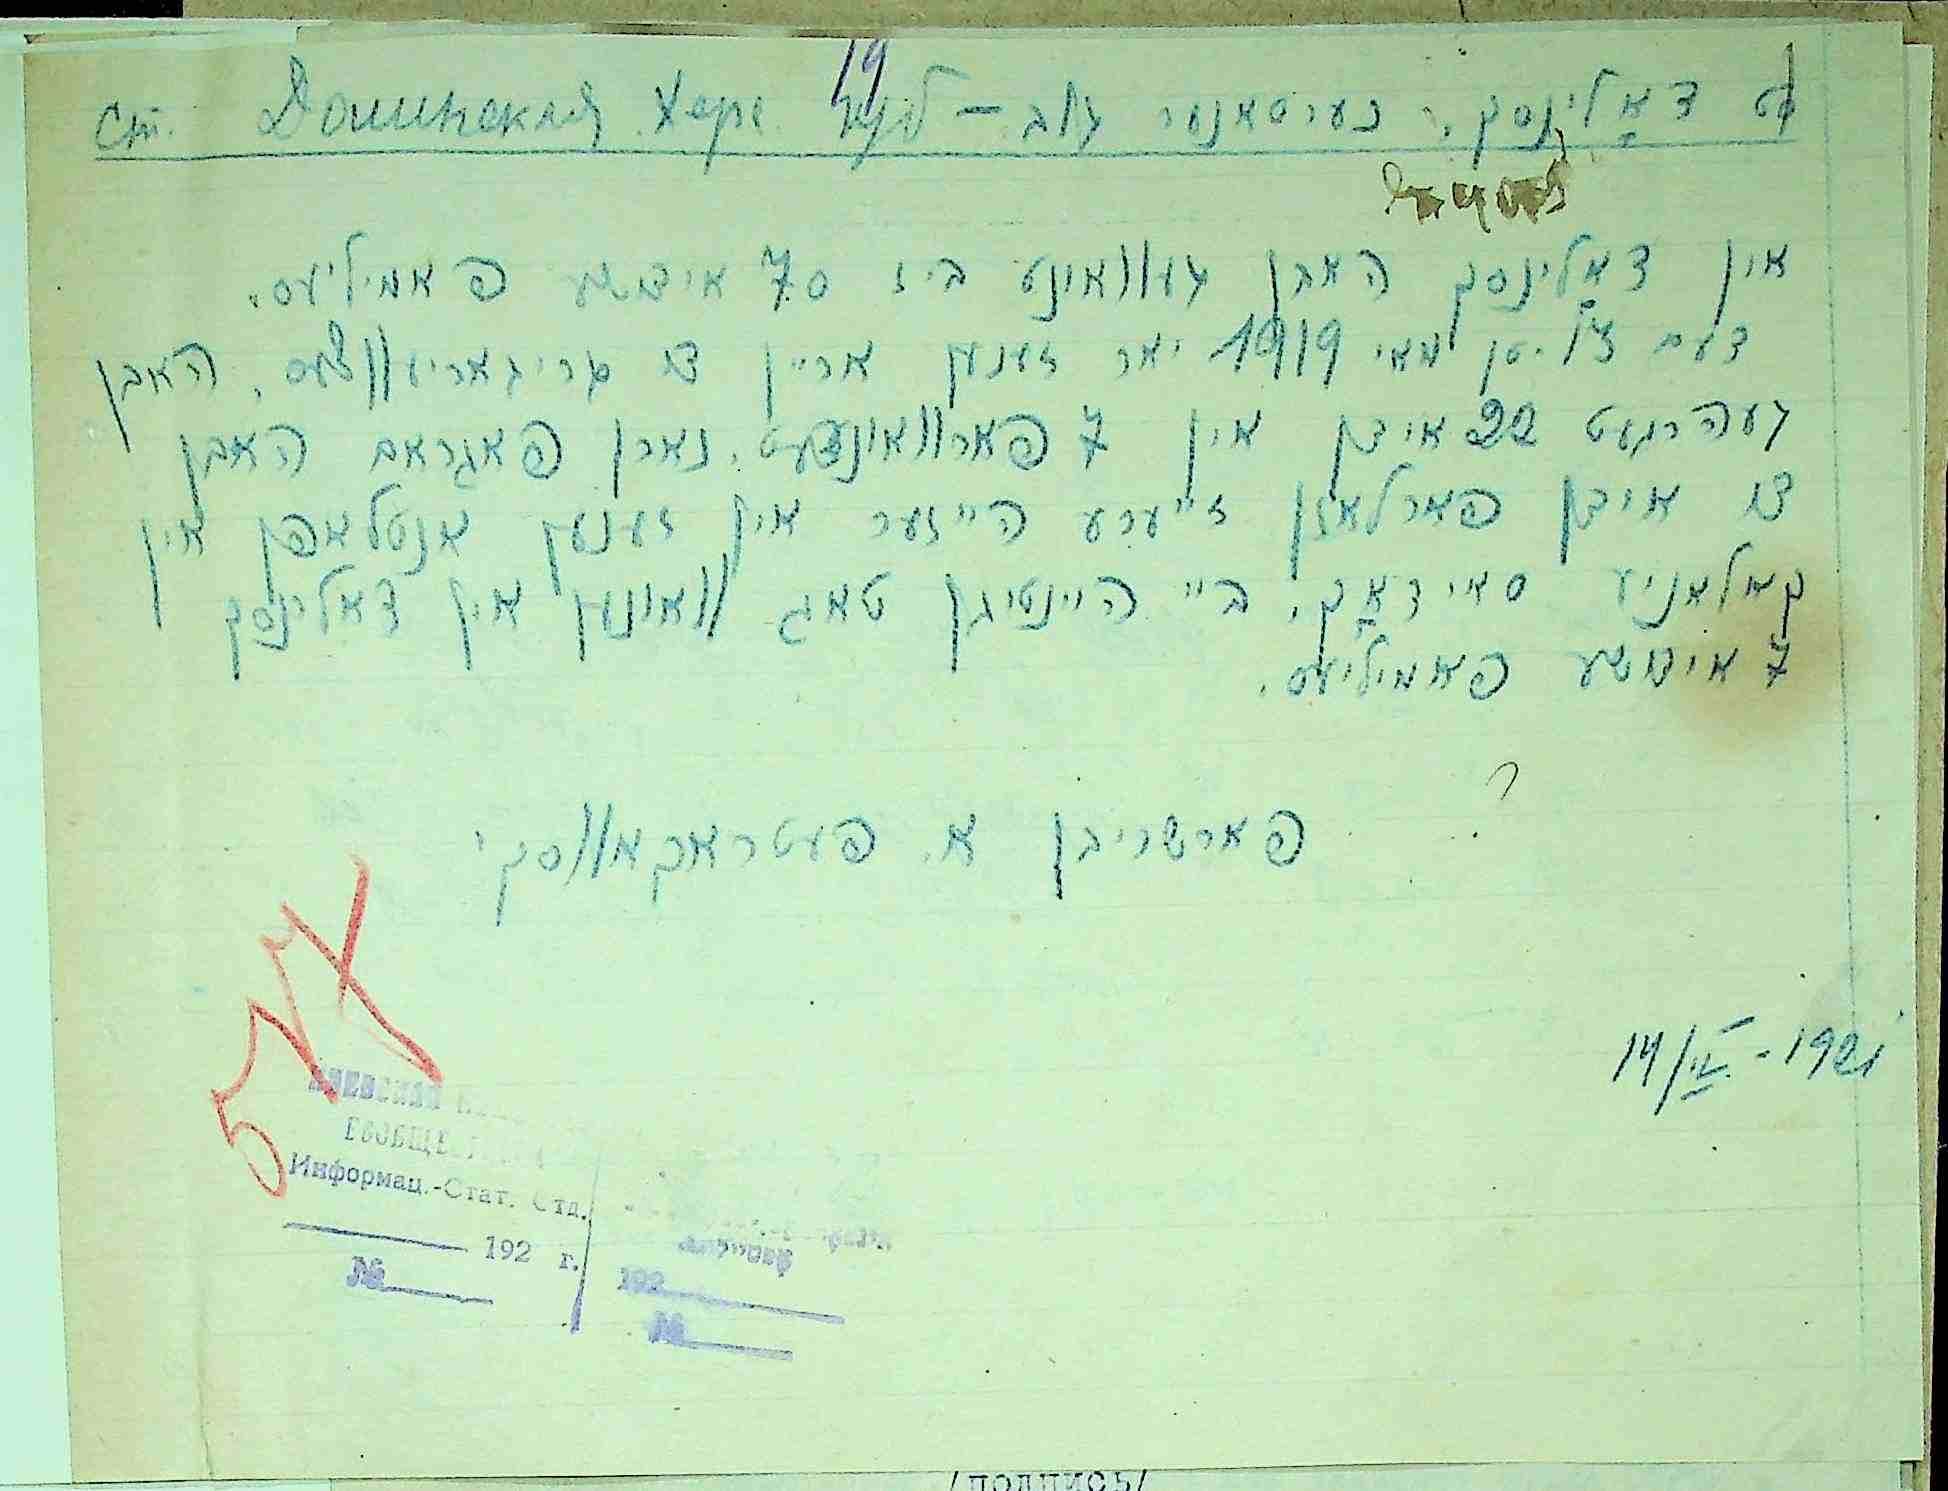 19
סט דאָלינסק, כערסאנער גוב – Ст. Долинская Херс.
אין דאָלינסק האבן געוואוינט ביז 70 אידישע פאמיליעס.
דעם 15טן מאי 1919 יאר זענען אריין די גריגאריעווצעס, האבן
געהרגעט 22 אידן אין 7 פארוואונדעט. נאכן פאגראם האבן
די אידן פארלאזן זייערע הייזער אין זענען אנטלאפן אין
קאלאניע סאידאָק, ביי היינטיגן טאג וואוינען אין דאלינסק
7 אידישע פאמיליעס.
פארשריבן א. פעטראקאווסקי
14/IV - 1921
5
Информац.-Стат. Отд.
192 г.
№
192
№
/подпись/